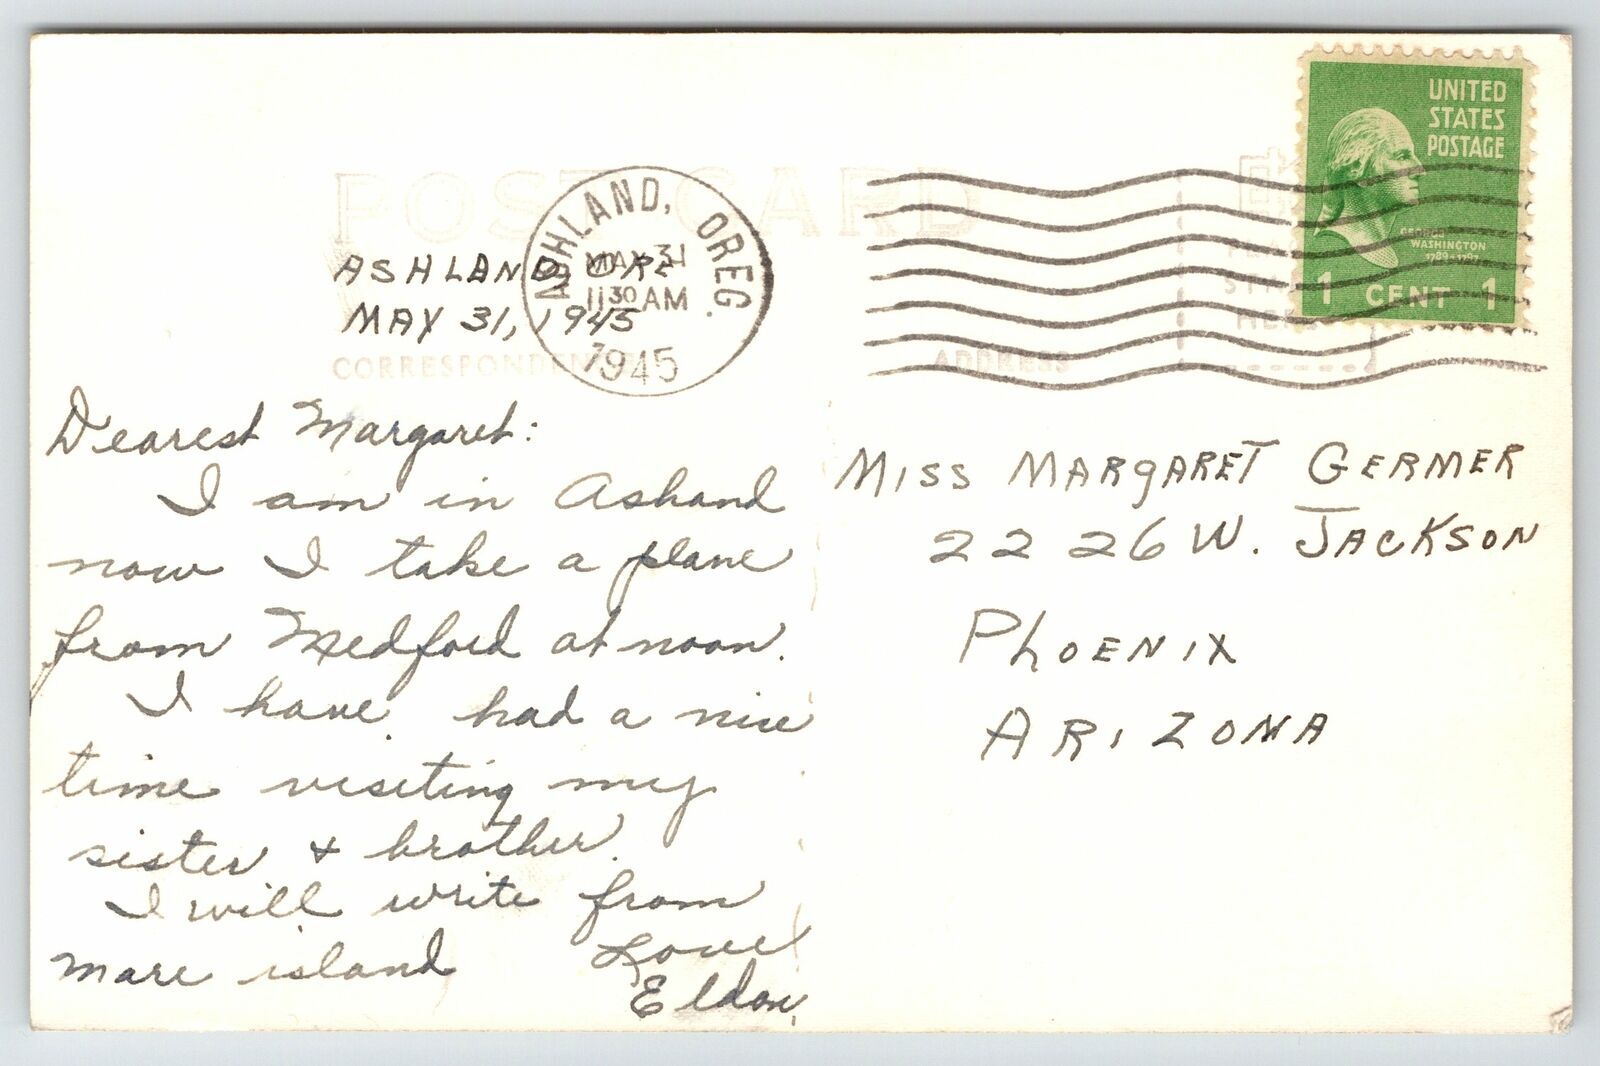 POST CARD
ASHLAND, OREG.
MAY 31
11 30 AM
1945
UNITED
STATES
POSTAGE
GEORGE
WASHINGTON
1789-1797
1 CENT 1
PLACE
STAMP
HERE
ASHLAND ORE
MAY 31, 1945
CORRESPONDENCE
ADDRESS
Dearest Margaret:
I am in Ashand
now I take a plane
from Medford at noon.
I have had a nice
time visiting my
sister & brother.
I will write from
mare island
Love
Eldon
MISS MARGARET GERMER
2226 W. JACKSON
PHOENIX
ARIZONA